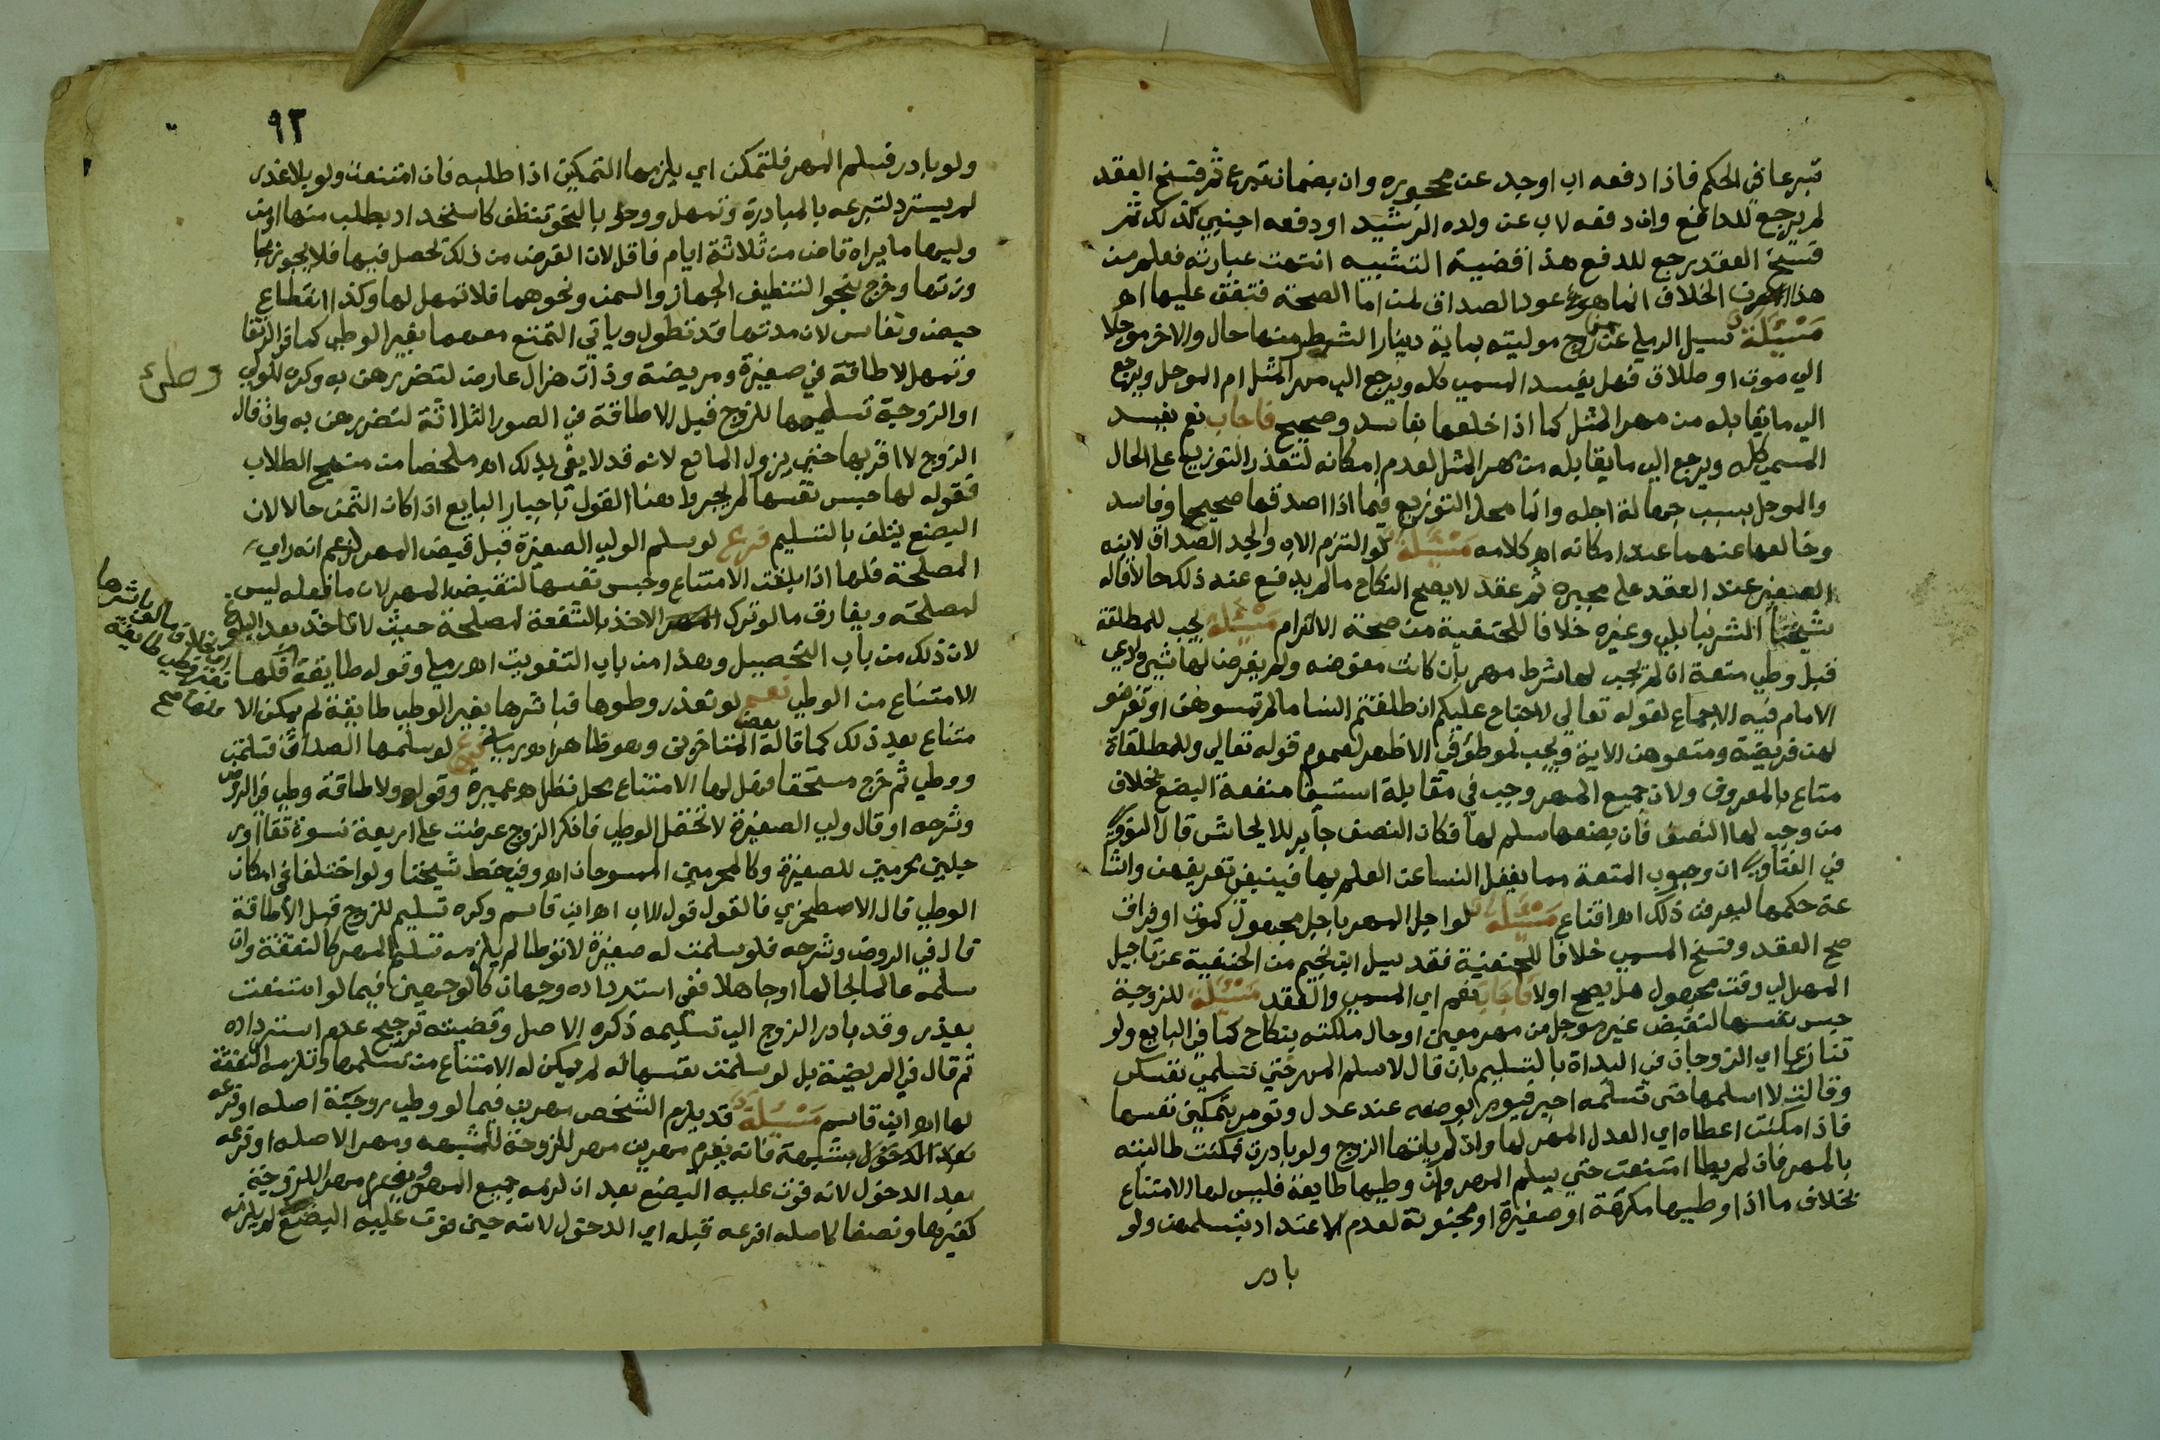 تبرعا في الحكم فاذا دفعه اب او جد عن محجوره وان بضمان تبرع ثم فسخ العقد
لم يرجع للدافع وان دفعه لاب عن ولده الرشيد او دفعه اجنبي كذلك ثم
فسخ العقد يرجع للدفع هذا قضية التشبيه انتهت عبارته فعلم من
هذا ان الخلاف انما هو في عود الصداق لمن اما الصحة فمتفق عليها اه
مسئلة سيل الرملي عن زوج موليته بماية دينار الشطر منها حال والاخر موجلا
الي موت او طلاق فهل يفسد المسمي كله ويرجع الي مهر المثل ام الموجل ويرجع
الي ما يقابله من مهر المثل كما اذا خلعها بفاسد وصحيح فاجاب نعم يفسد
المسمي كله ويرجع الي ما يقابله من مهر المثل لعدم امكانه لتعذر التوزيع علي الحال
والموجل بسبب جهالة اجله وانما محل التوزيع فيما اذا اصدقها صحيحا وفاسد
وخالعها عنهما عند امكانه اه كلامه مسئلة لو التزم الاب والجد الصداق لابنه
الصغير عند العقد علي مجبره ثم عقد لا يصح النكاح ما لم يدفع عند ذلك حالا قاله
شيخنا الشرنبابلي وغيره خلافا للحنفية من صحة الالتزام مسئلة يجب للمطلقة
قبل وطي متعة ان لم يجب لها شرط مهر بان كانت مفوضه ولم يفرض لها شي ولاي
الامام فيه الاجماع لقوله تعالي لا جناح عليكم ان طلقتم النسا ما لم تمسوهن او تفرضو
لهن فريضة ومتعوهن الاية ويجب لموطؤة في الاظهر لعموم قوله تعالي وللمطلقاة
متاع بالمعروف ولان جميع المهر وجب في مقابلة استيفا منفعة البضع بخلاف
من وجب لها النصف فان بضعها سلم لها فكان النصف جابر للايحاش قال النووي
في الفتاوي ان وجوب المتعة مما يغفل النسا عن العلم بها فينبغي تعريفهن واشا
عة حكمها ليعرفن ذلك اه اقناع مسئلة لو اجل المهر باجل مجهول كموت او فراق
صح العقد وفسخ المسمي خلافا للحنفية فقد سيل ابن نجيم من الحنفية عن تاجيل
المهر لي وقت مجهول هل يصح اولا فاجاب نعم اي المسمي والعقد مسئلة للزوجة
حبس نفسها لتقبض غير موجل من مهر معين او حال ملكته بنكاح كما في البايع ولو
تنازعا اي الزوجان في البداة بالتسليم بان قال لا سلم المهر حتي تسلمي نفسك
وقالت لا اسلمها حتي تسلمه اجبر فيومر بوضعه عند عدل وتومر بتمكين نفسها
فاذا مكنت اعطاه اي العدل المهر لها وان لم ياتها الزوج ولو بادرت فمكنت طالبته
بالمهر فان لم يطا امتنعت حتي يسلم المهر وان وطيها طايعة فليس لها الامتناع
بخلاف ما اذا وطيها مكرهة او صغيرة او مجنونة لعدم الاعتداد بتسلمهن ولو
بادر
٩٣
ولو بادر فسلم المهر فلتمكن اي يلزمها التمكين اذا طلبه فان امتنعت ولو بلا عذر
لم يسترد لتبرعه بالمبادرة وتمهل ووحوبا بالنحو تنظف كاستحداد بطلب منها او من
وليها ما يراه قاض من ثلاثة ايام فاقل لان الغرض من ذلك تحصل فيها فلا يجوز
وزتها وخرج بنحو التنظيف الجهاز والسمن ونحوهما فلا تمهل لها وكذا انقطاع
حيض ونفاس لان مدتها قد تطول وياتي التمتع معهما بغير الوطي كما في الرتقا
وتمهل لاطاقة في صغيرة ومريضة وذات هزال عارض لتضررهن به وكره للولي
وطئ
او الزوجية تسليمها للزوج قبل الاطاقة في الصور الثلاثة لتضررهن به وان قال
الزوج لا اقربها حتي يزول المانع لانه قد لا يفي بذلك اه ملخصا من منهج الطلاب
فقوله لها حبس نفسها لم يجر وا هنا القول باجبار البايع اذا كان الثمن حالا لان
البضع يتلف بالتسليم فرع لو سلم الولي الصغيرة قبل قبض المهر لزعم انه راي
المصلحة فلها اذا بلغت الامتناع وحبس نفسها لتقبض المهر لان ما فعله ليس
لمصلحة ويفارق ما لو ترك الاخذ بالشفعة لمصلحة حيث لا تاخد بعد البلوغ
لان ذلك من باب التحصيل وهذا من باب التفويت اه رملي وقوله طايعة فلها
الامتناع من الوطي نعم لو تعذر وطوها فباشرها بغير الوطي طايعة لم يمكن الا
متناع بعد ذلك كما قاله بعض المتاخرين وهو ظاهر اه فرع لو سلمها الصداق فسلمت
ووطي ثم خرج مستحقا فهل لها الامتناع محل نظر اه عميرة وقوله ولا طاقة وطي في الروض
وشرحه او قال ولي الصغيرة لا تحتمل الوطي فانكر الزوج عرضت علي اربعة نسوة ثقا او ر
جلين محرمين للصغيرة وكالمحرمين الممسوحان اه وفي خط شيخنا ولو اختلفا في امكان
الوطي قال الاصطخري فالقول قول الاب اه ابن قاسم وكره تسليم للزوج قبل الاطاقة
قال في الروض وشرحه فلو سلمت له صغيرة لا توطا لم يلزمه تسليم المهر كالنفقة وان
سلمه عالما بحالها او جاهلا ففي استرداده وجهان كالوجهين فيما لو امتنعت
بعذر وقد بادر الزوج الي تسليمه ذكره الاصل وقضيته ترجيح عدم استرداده
ثم قال في المريضة بل لو سلمت نفسها له لم يمكن له الامتناع من تسلمها وتلزمه النفقة
لها اه ابن قاسم مسئلة قد يلزم الشخص مهرين فيما لو وطي زوجته اصله او فرعه
بعد الدخول بشبهة فانه يغرم مهرين مهر للزوجة للشبهة ومهر الاصله او فرعه
بعد الدخول لانه فوت عليه البضع بعد ان لزمه جميع المهر ويغرم مهر للزوجة
كغيرها ونصفا لاصله او فرعه قبله اي الدخول لانه حين فوت عليه البضع لم يلزمه